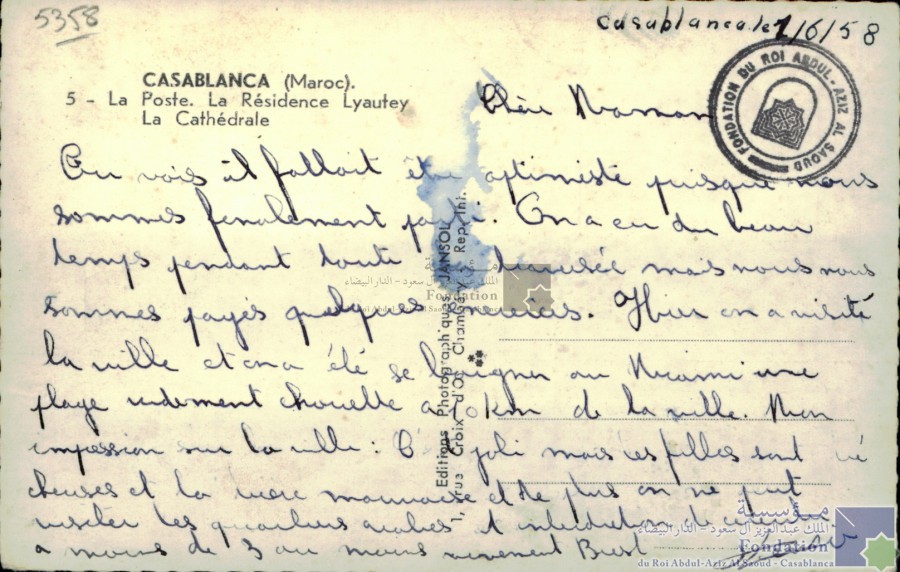 5358
Casablanca le 1/6/58
CASABLANCA (Maroc).
5 - La Poste. La Résidence Lyautey
La Cathédrale
FONDATION DU ROI ABDUL-AZIZ AL SAOUD - CASABLANCA
Chère Maman
Tu vois il fallait être optimiste puisque nous
sommes finalement. On a eu du beau
temps pendant toute la traversée mais nous nous
sommes payés quelques. Hier on a visité
la ville et on a été se baigner au Miami une
plage rudement chouette à 10 km de la ville. Mon
impression sur la ville: C'est joli mais les filles sont
et la bière mauvaise et de plus on ne peut
visiter les quartiers arabes et interdiction de
à moins de 3 au moins vivement Brest
Editions Photographiques JANSOL
1, rue Croix d'Or Chambéry Rep. Int.
مؤسسة
الملك عبد العزيز آل سعود - الدار البيضاء
Fondation
du Roi Abdul-Aziz Al Saoud - Casablanca
مؤسسة
الملك عبد العزيز آل سعود - الدار البيضاء
Fondation
du Roi Abdul-Aziz Al Saoud - Casablanca